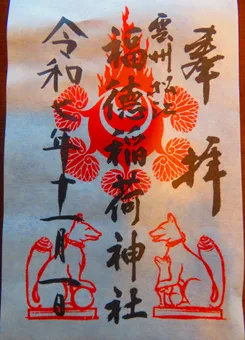 奉拝
雲州
福徳稲荷神社
令和七年十一月一日